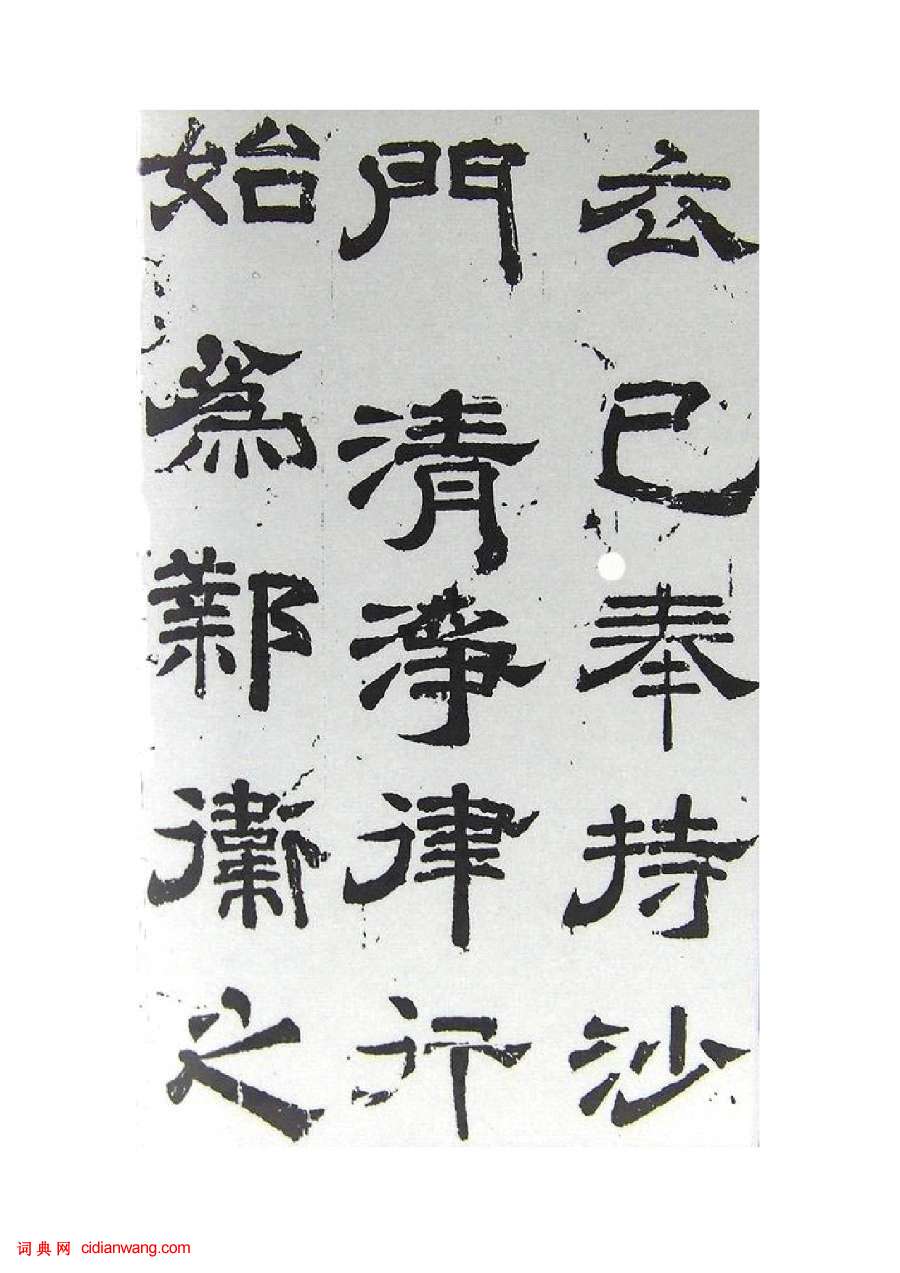 衣已奉持沙
門清淨律行
始爲鄴衛之
词典网 cidianwang.com